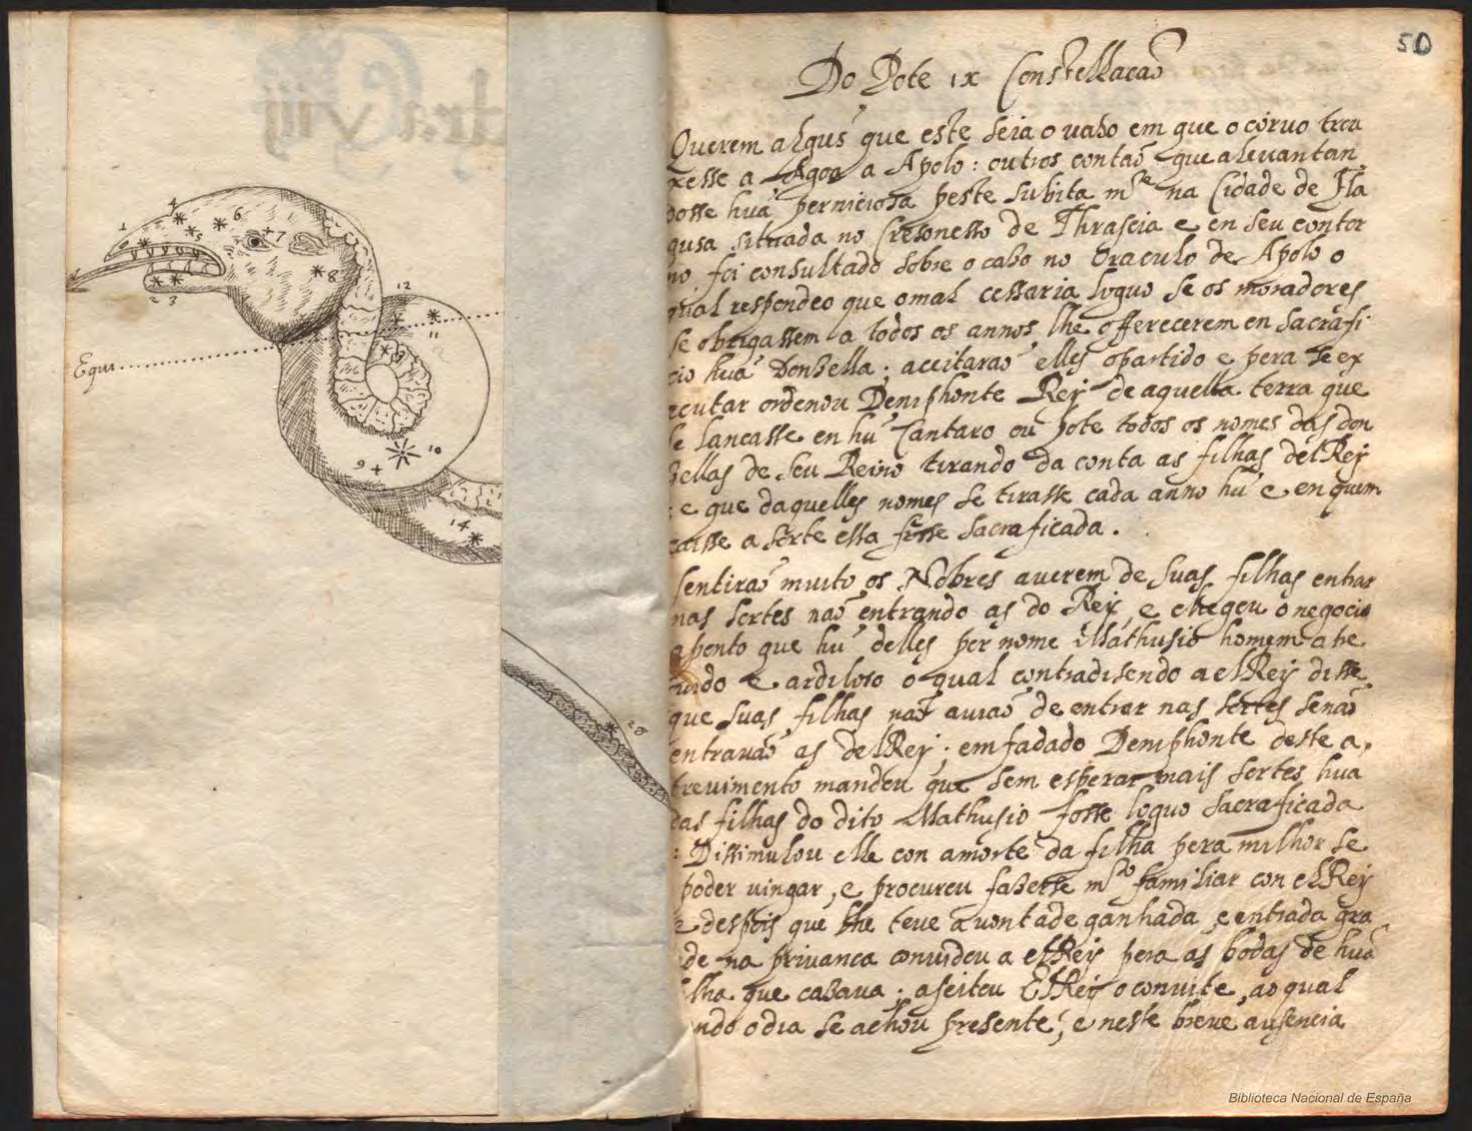 Equi
1
4
5
6
7
8
2 3
12
11
13
9
10
14
20
50
Do Pote ix Constellacaõ
Querem algũs que este seia o uaso em que o coruo trou
xesse a Agoa a Apolo: outros contaõ que aleuantan
dosse huã perniciosa peste subita mte na Cidade de Fla
gusa situada no Cresonesso de Thrascia e en seu contor
no foi consultado sobre o caso no Oraculo de Apolo o
qual respondeo que o mal cessaria loguo se os moradores
se obrigassem a todos os annos lhe offerecerem en sacrafi
cio huã Donzella; aceitaraõ elles o partido e pera se ex
ecutar ordenou Demphonte Rey de aquella terra que
se lancasse en hũ Cantaro ou pote todos os nomes das don
zellas de seu Reino tirando da conta as filhas delRey
: e que daquelles nomes se tirasse cada anno hũ e en quem
caisse a sorte essa fosse sacraficada.
sentiraõ muito os Nobres auerem de suas filhas entrar
nas sortes naõ entrando as do Rey, e chegou o negocio
a ponto que hũ delles por nome Mathusio homem atre
uido e ardiloso o qual contradisendo a elRey disse
que suas filhas naõ auiaõ de entrar nas sortes senaõ
entrauaõ as delRey; emfadado Demphonte deste a,
treuimento mandou que sem esperar mais sortes hua
das filhas do dito Mathusio fosse loguo sacraficada
: Dissimulou elle con a morte da filha pera milhor se
poder uingar, e procurou faserse mto familiar con elRey
e despois que lhe teve a vontade ganhada, e entrada gra
de na priuanca conuidou a elRey pera as bodas de huã
filha que casaua; aseitou ElRey o conuite, ao qual
ndo o dia se achou presente, e neste breue ausencia
Biblioteca Nacional de España